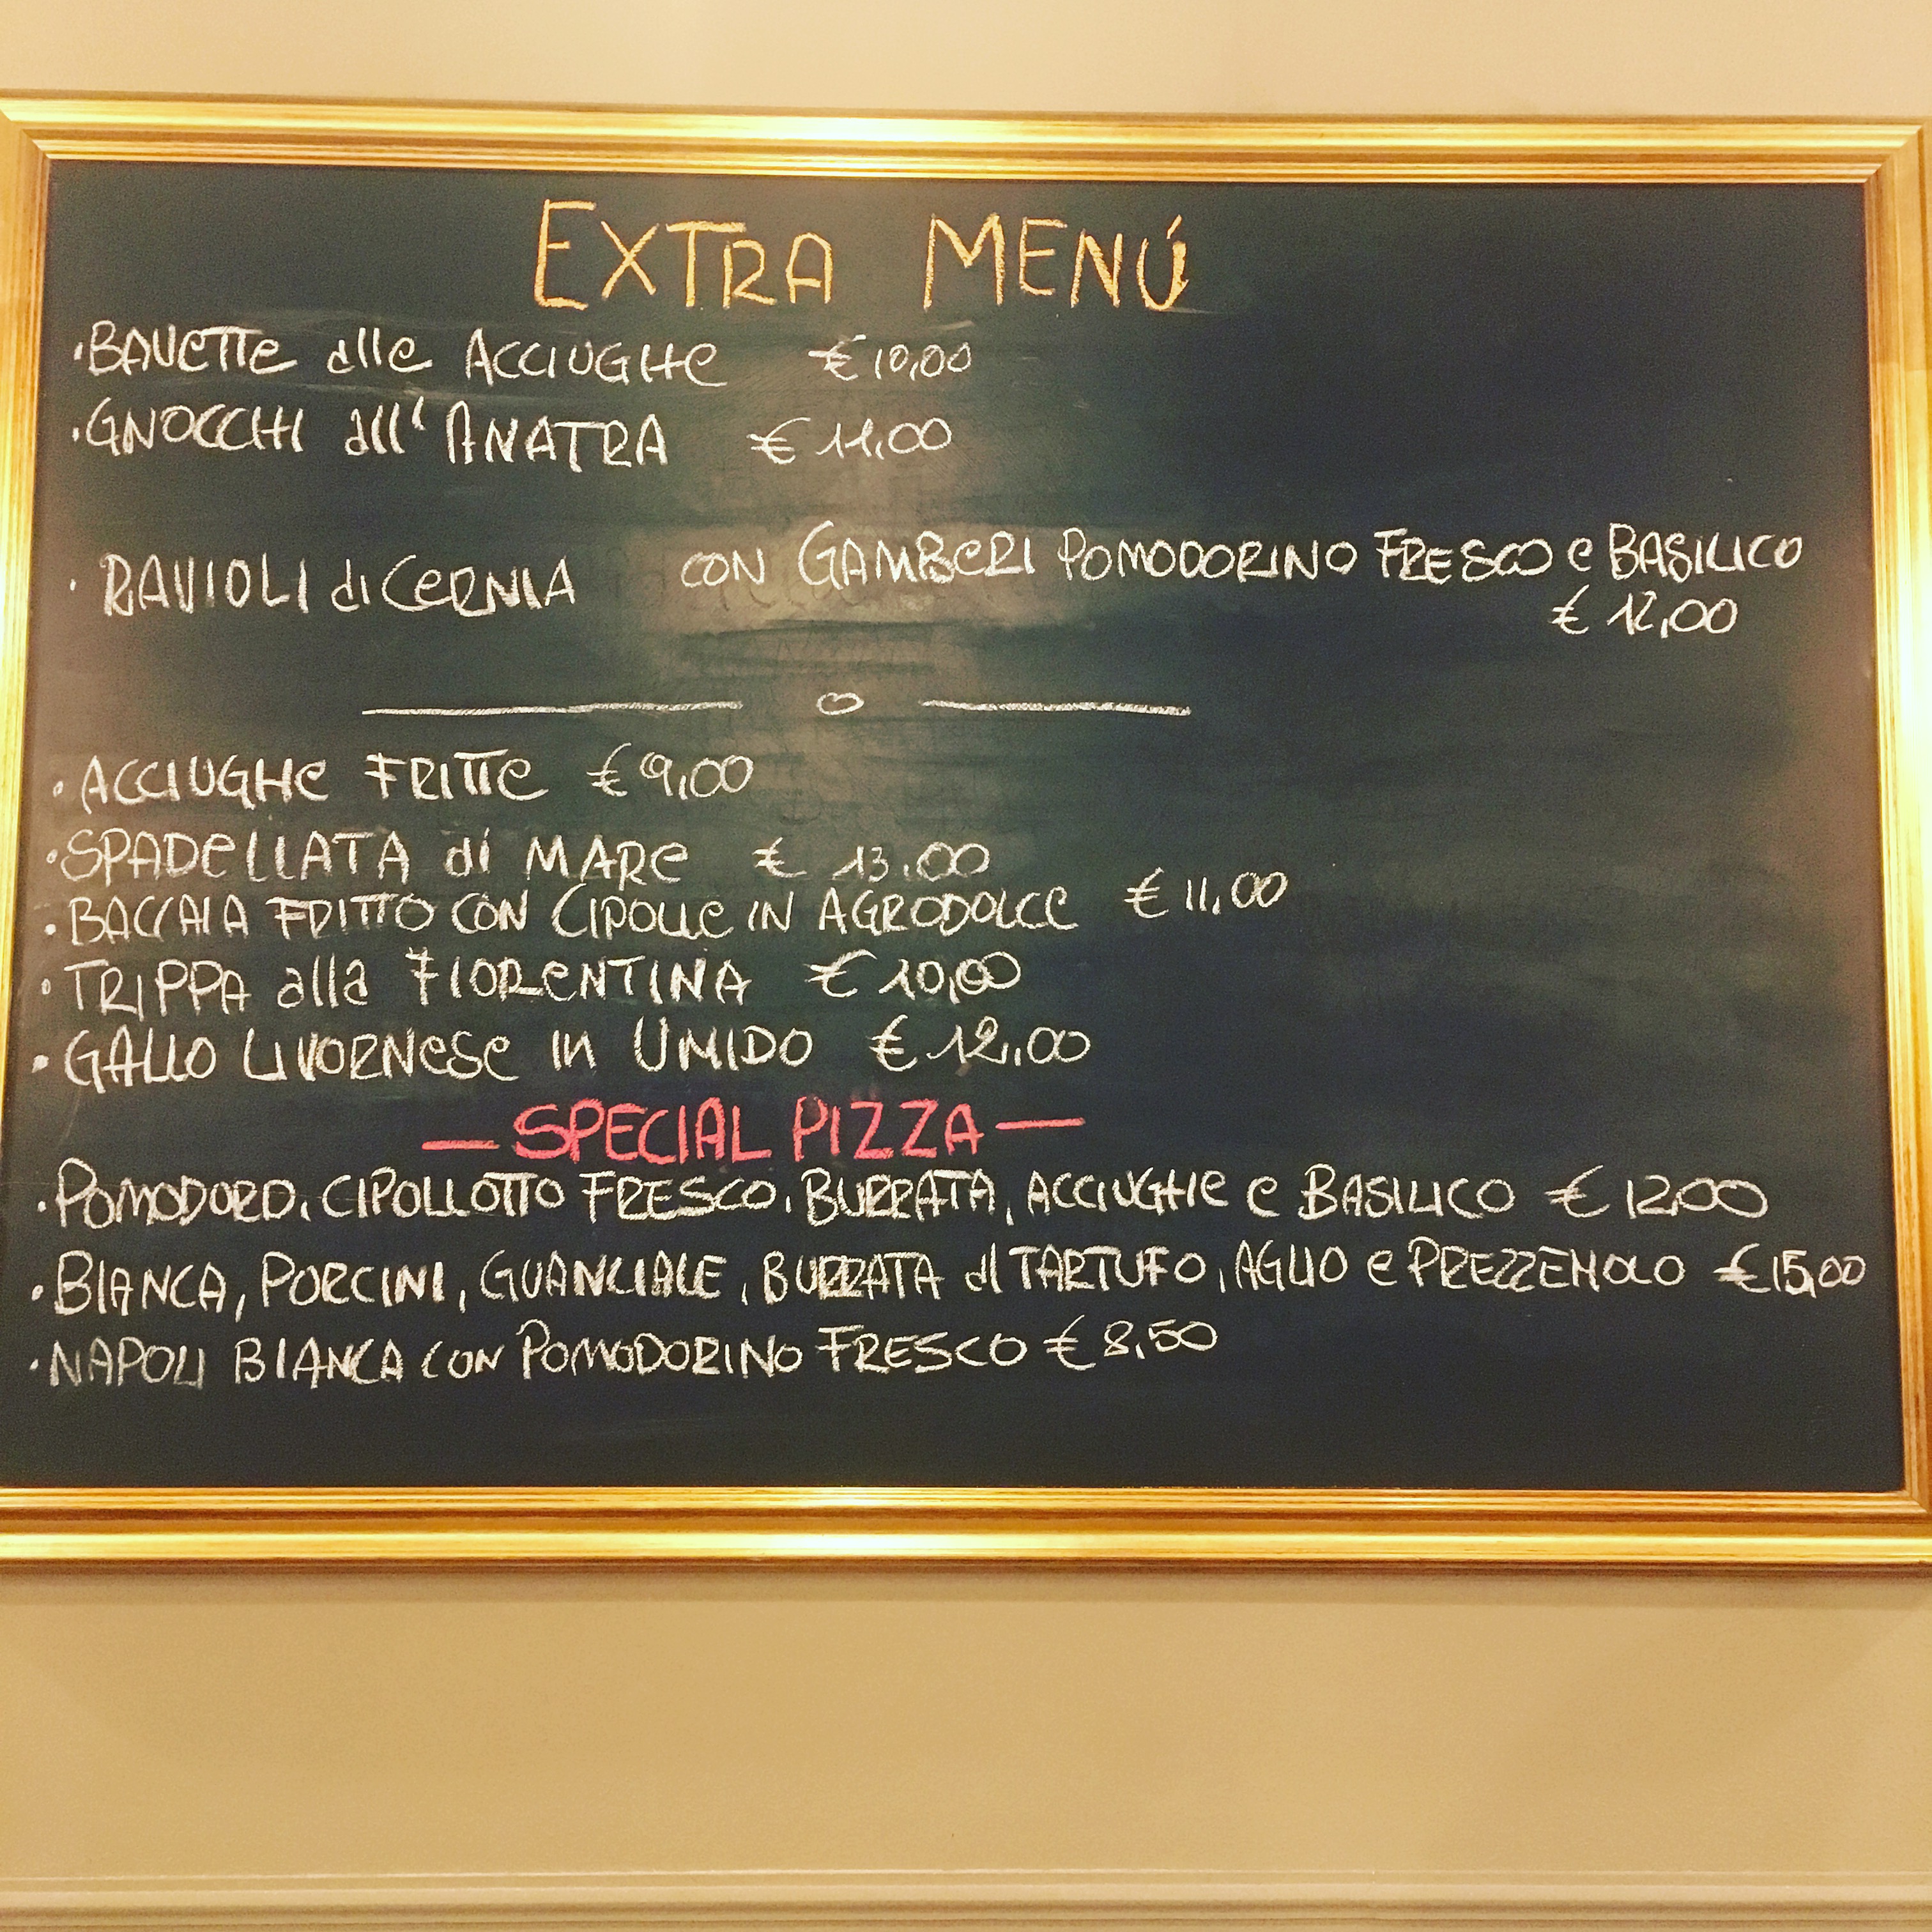 EXTRA MENÚ
·BAVETTE alle ACCIUGHE €10,00
·GNOCCHI all'ANATRA €11,00
·RAVIOLI di CERNIA CON GAMBERI POMODORINO FRESCO e BASILICO
€ 12,00
·ACCIUGHE FRITTE €9,00
·SPADELLATA di MARE € 13,00
·BACCALA FRITTO CON CIPOLLE IN AGRODOLCE €11,00
·TRIPPA alla FIORENTINA €10,00
·GALLO LIVORNESE IN UMIDO €12,00
— SPECIAL PIZZA —
·POMODORO, CIPOLLOTTO FRESCO, BURRATA, ACCIUGHE e BASILICO €12,00
·BIANCA, PORCINI, GUANCIALE, BURRATA al TARTUFO, AGLIO e PREZZEMOLO €15,00
·NAPOLI BIANCA CON POMODORINO FRESCO €8,50